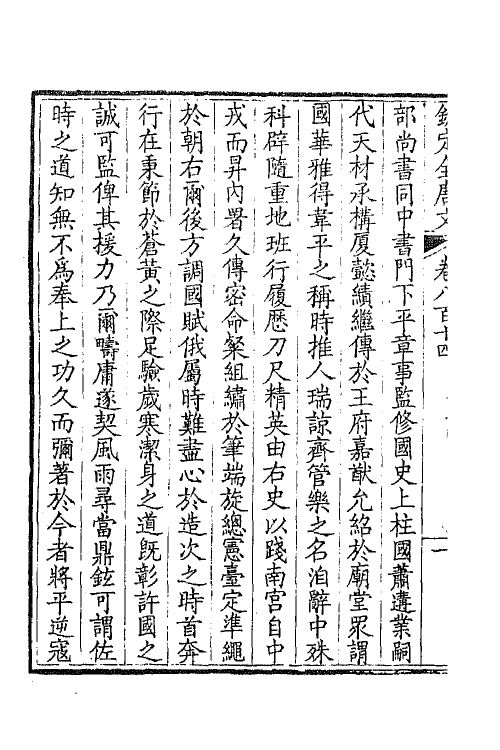 欽定全唐文 卷八百十四 一
部尚書同中書門下平章事監修國史上柱國蕭遘業嗣
代天材承構厦懿績繼傳於王府嘉猷允紹於廟堂眾謂
國華雅得韋平之稱時推人瑞諒齊管樂之名洎辭中殊
科辟隨重地班行履歷刀尺精英由右史以踐南宮自中
戎而昇內署久傳密命粲組繡於筆端旋總憲臺定準繩
於朝右爾後方調國賦俄屬時難盡心於造次之時首奔
行在秉節於蒼黃之際足驗歲寒潔身之道旣彰許國之
誠可監俾其援力乃爾疇庸遂契風雨尋當鼎鉉可謂佐
時之道知無不爲奉上之功久而彌著於今者將平逆寇